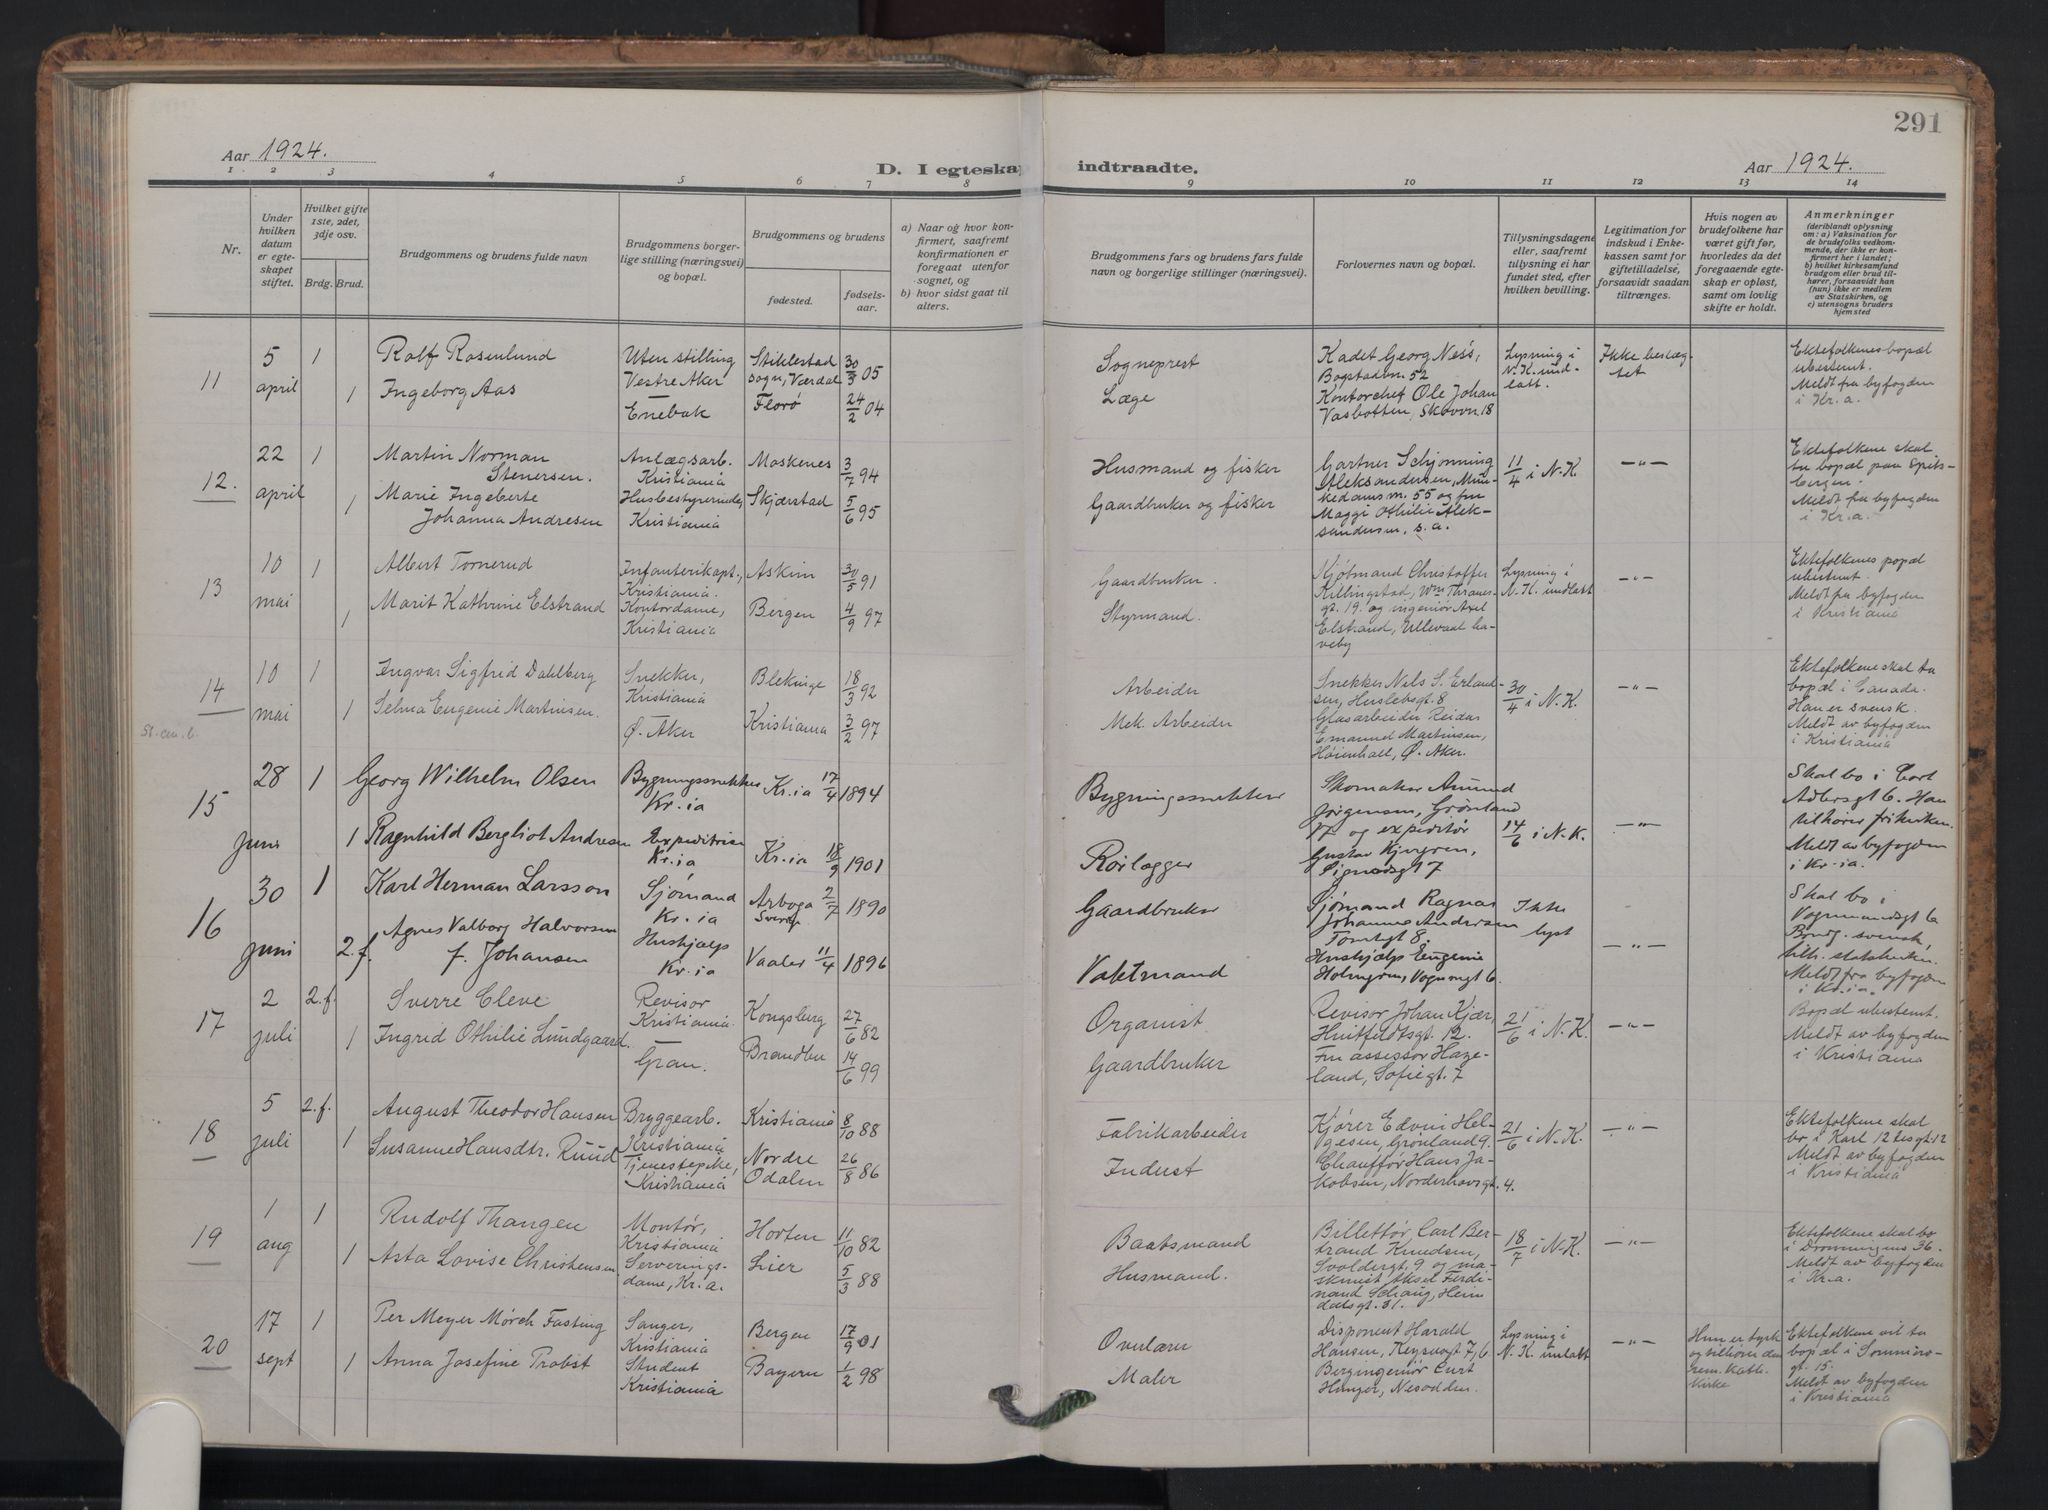 291
Aar 1924.
D. I egteskap indtraadte.
Aar 1924.
1 2 3 4 5 6 7 8 9 10 11 12 13 14
Nr.
Under hvilken datum er egteskapet stiftet.
Hvilket gifte 1ste, 2det, 3dje osv.
Brdg. Brud.
Brudgommens og brudens fulde navn
Brudgommens borgerlige stilling (næringsvei) og bopæl.
Brudgommens og brudens
fødested.
fødselsaar.
a) Naar og hvor konfirmert, saafremt konfirmationen er foregaat utenfor sognet, og
b) hvor sidst gaat til alters.
Brudgommens fars og brudens fars fulde navn og borgerlige stillinger (næringsvei).
Forlovernes navn og bopæl.
Tillysningsdagene eller, saafremt tillysning ei har fundet sted, efter hvilken bevilling.
Legitimation for indskud i Enkekassen samt for giftetilladelse, forsaavidt saadan tiltrænges.
Hvis nogen av brudefolkene har været gift før, hvorledes da det foregaaende egteskap er opløst, samt om lovlig skifte er holdt.
Anmerkninger
(deriblandt oplysning om: a) Vaksination for de brudefolks vedkommende, der ikke er konfirmert her i landet;
b) hvilket kirkesamfund brudgom eller brud tilhører, forsaavidt han (hun) ikke er medlem av Statskirken, og
c) utensogns bruders hjemsted
11
5 april
1
Rolf Rosenlund
Uten stilling
Vestre Aker
Stiklestad
sogn, Værdal
30/3 05
Sogneprest
1
Ingeborg Aas
Enebak
Florø
24/2 04
Læge
Kadet Georg Ness,
Bogstadvn. 52
Kontorchef Ole Johan
Vasbotten, Skovvn. 18
Lysning i
N. K. und-
latt.
Ikke beslæg-
tet
Ektefolkenes bopæl
ubestemt.
Meldt fra byfogden
i Kr. a.
12.
22 april
1
Martin Norman
Stenersen.
Anlægsarb.
Kristiania
Moskenes
3/7 94
Husmand og fisker
1
Marie Ingeberte
Johanna Andresen
Husbestyrerinde,
Kristiania
Skjerstad
5/6 95
Gaardbruker og fisker
Gartner Schjønning
Aleksandersen, Mun-
kedamsvn. 55 og fru
Maggi Othilie Alek-
sandersen, s. a.
11/4 i N. K.
—"—
Ektefolkene skal
ta bopæl paa Spits-
bergen.
Meldt fra byfogden
i Kr. a.
13
10 mai
1
Albert Tornerud
Infanterikapt.,
Kristiania.
Askim
30/5 91
Gaardbruker.
1
Marit Kathrine Elstrand
Kontordame,
Kristiania
Bergen
4/9 97
Styrmand.
Kjøbmand Christoffer
Killingstad, Wm Thranes-
gt. 19. og ingeniør Axel
Elstrand, Ullevaal ha-
veby
Lysning i
N. K. undlatt
—"—
Ektefolkenes popæl
ubestemt.
Meldt fra byfogden
i Kristiania
14
10 mai
1
Ingvar Sigfrid Dahlberg
Snekker,
Kristiania
Blekinge
18/3 92
Arbeider
1
Selma Eugenie Martinsen.
Ø. Aker
Kristiania
3/2 97
Mek. Arbeider
Snekker Nels S. Erland-
sen, Herslebsgt. 8
Glasarbeider Reidar
Emanuel Martinsen,
Høienhall, Ø. Aker.
30/4 i N. K.
—"—
Ektefolkene skal ta
bopæl i Canada.
Han er svensk.
Meldt av byfogden
i Kristiania
15
28 juni
1
Georg Wilhelm Olsen
Bygningssnekker
Kr.ia
Kr.ia
17/4 1894
Bygningssnekker
1
Ragnhild Bergliot Andresen
Expeditrise
Kr.ia
Kr.ia
18/9 1901
Rørlægger
Skomaker Amund
Jørgensen, Grønland
17 og expeditør
Gustav Kjergren,
Signedsgt 7
14/6 i N. K.
—"—
Skal bo i Cort
Adlersgt 6. Han
tilhører frikirken.
Meldt av byfogden
i Kr-ia.
16
30 juni
1
Karl Herman Larsson
Sjømand
Kr.ia
Arboga
Sverige
2/7 1890
Gaardbruker
2. f.
Agnes Valborg Halvorsen
f. Johansen
Hushjelp
Kr.ia
Vaaler
11/4 1896
Vaktmand
Sjømand Ragnar
Johannes Andersen
Tomtegt 8.
Hushjælp Eugenia
Holmgren, Vognmgt 6.
Ikke
lyst
—"—
Skal bo i
Vognmandsgt 6a
Brudg. svensk,
tilh. statskirken.
Meldt fra byfogden
i Kr.ia.
17
2 juli
2. f.
Sverre Cleve
Revisor
Kristiania.
Kongsberg
27/6 82
Organist
1
Ingrid Othilie Lundgaard.
Gran.
Brandbu
14/6 99
Gaardbruker
Revisor Johan Kjær,
Huitfeldtsgt. 12.
Fru assessor Haze-
land, Sofiegt. 7
21/6 i N. K.
—"—
Bopæl ubestemt.
Meldt av byfogden
i Kristiania
18
5 juli
2. f.
August Theodor Hansen
Bryggearb.
Kristiania
Kristiania
8/10 88
Fabrikarbeider
1
Susanne Hansdtr. Ruud
Tjenestepike,
Kristiania
Nordre
Odalen
26/8 86
Inderst
Kjører Edvin Hel-
gesen, Grønland 9.
Chauffør Hans Ja-
kobsen, Norderhovsgt. 4.
21/6 i N. K.
—"—
Ektefolkene skal
bo i Karl 12 tes gt. 12
Meldt av byfogden
i Kristiania
19
1 aug
1
Rudolf Thangen
Montør,
Kristiania
Horten
11/10 82
Baatsmand
1
Asta Lovise Christensen
Serverings-
dame, Kr. a.
Lier
5/3 88
Husmand.
Billettør Carl Ber-
trand Knudsen,
Svoldergt. 9 og ma-
skinist Aksel Ferdi-
nand Schang, Heim
dalsgt. 31.
18/7 i N. K.
—"—
Ektefolkene skal bo
i Dronningens 36.
Meldt av byfogden
i Kr. a.
20
17 sept
1
Per Meyer Mørch Fasting
Sanger,
Kristiania
Bergen
17/9 01
Overlærer
1
Anna Josefine Probst
Student
Kristiania
Bayern
1/2 98
Maler
Disponent Harald
Hansen, Keysersgt 7, 6
Bergingeniør Curt
Hunger, Nesodden.
Lysning i
N. K. undlatt
—"—
Hun er tysk
og tilhører den
rom. Kath.
Kirke
Ektefolkene vil ta
bopæl i Sommro-
gt. 15.
Meldt av byfogden
i Kristiania